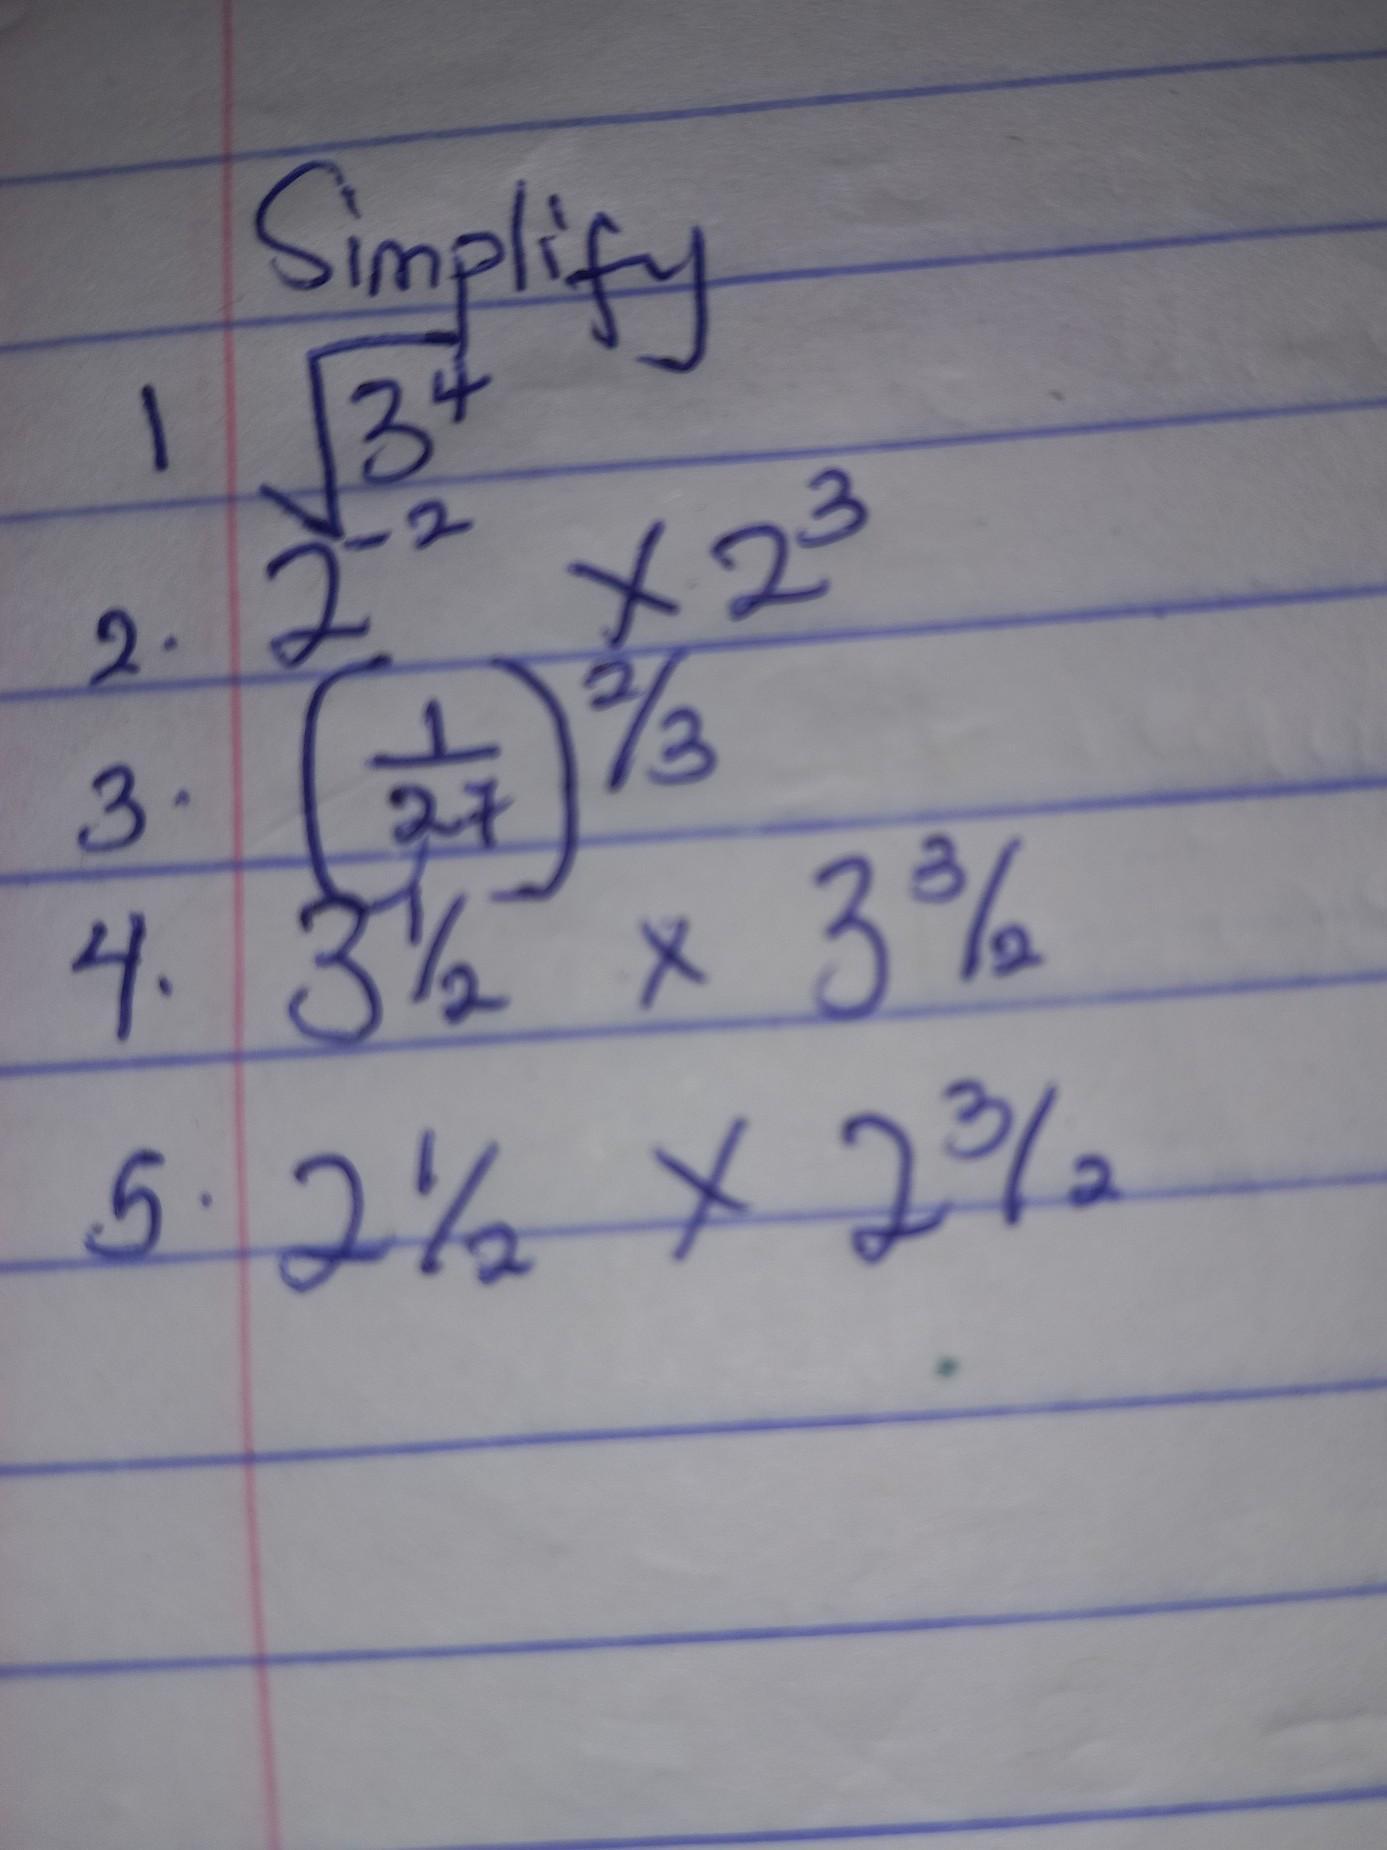 Simplify
1 √3⁴
2. 2⁻² × 2³
3. (1/27)^2/3
4. 3^1/2 × 3^3/2
5. 2^1/2 × 2^3/2